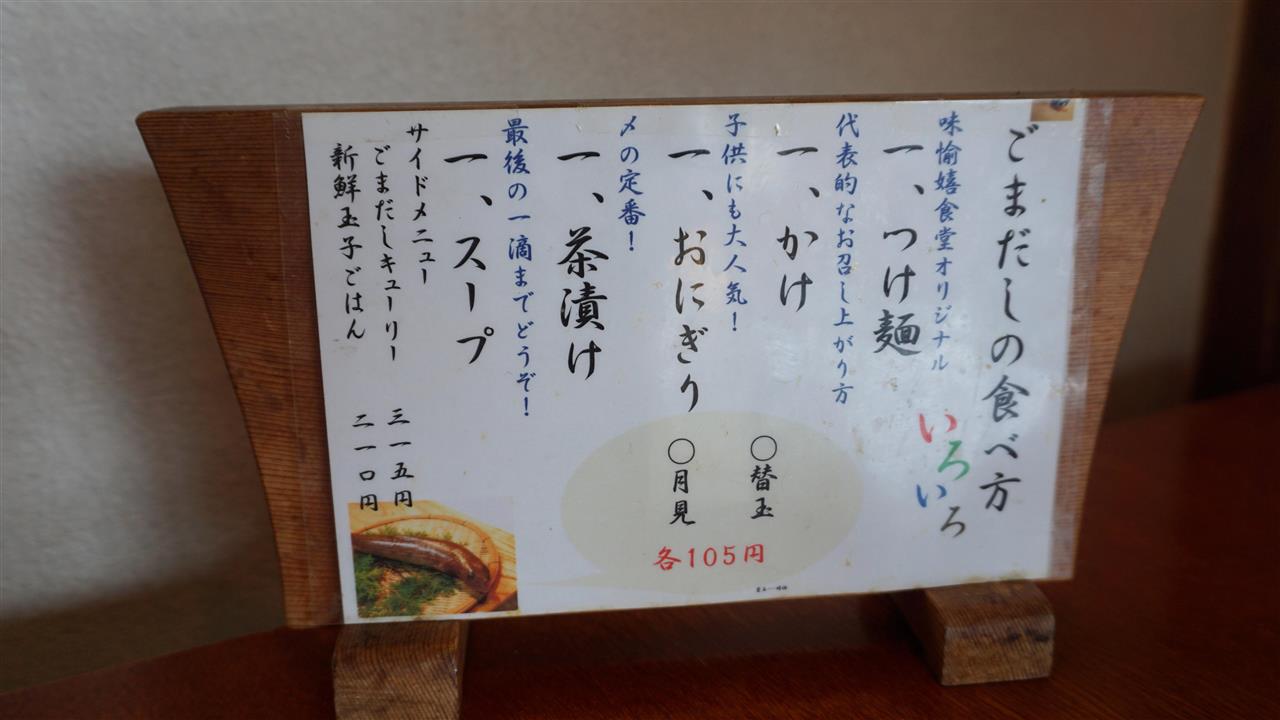 ごまだしの食べ方
いろいろ
味愉嬉食堂オリジナル
一、つけ麺
代表的なお召し上がり方
一、かけ
子供にも大人気！
一、おにぎり
〆の定番！
一、茶漬け
最後の一滴までどうぞ！
一、スープ
○替玉
○月見
各105円
サイドメニュー
ごまだしキューリー 三一五円
新鮮玉子ごはん 二一〇円